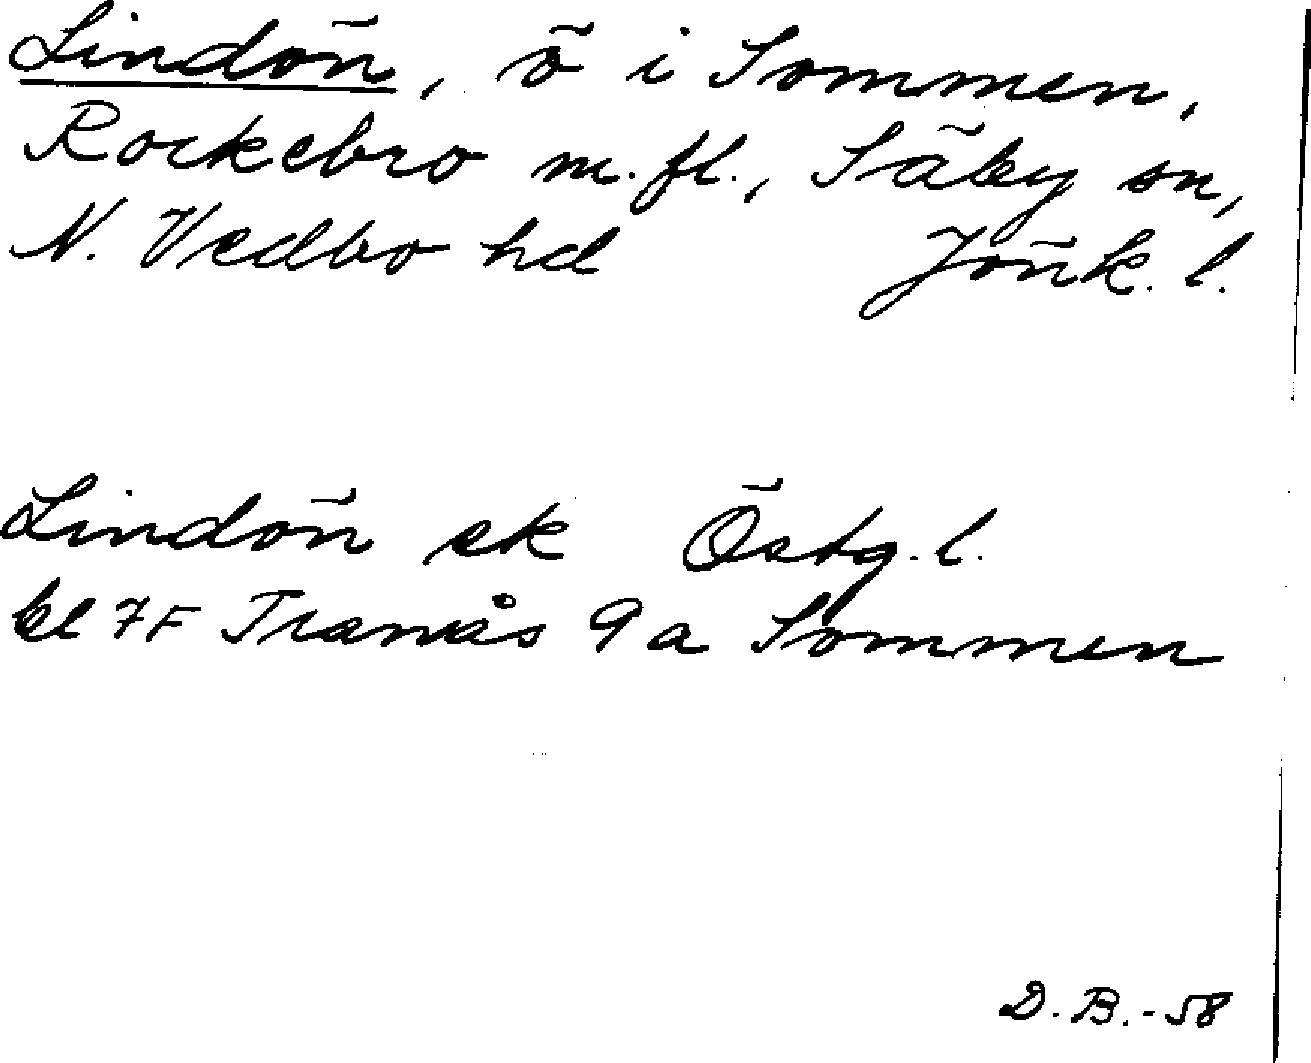 Lindön, ö i Sommen,
Rockebro m.fl., Säby sn,
N. Vedbo hd Jönk. l.
Lindön ek Östg. l.
bl 7F Tranås 9a Sommen
D. B. - 58